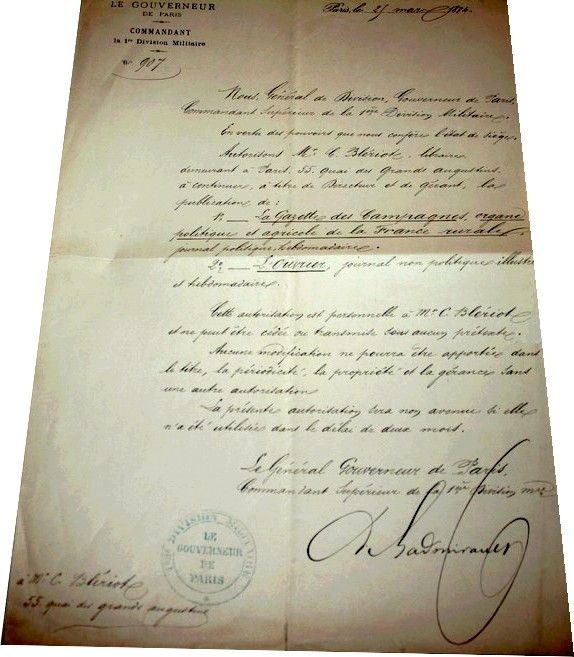 LE GOUVERNEUR
DE PARIS
COMMANDANT
la 1re Division Militaire
No 907
Paris, le 25 mars 1874.
Nous, Général de Division, Gouverneur de Paris,
Commandant Supérieur de la 1ère Division Militaire.
En vertu des pouvoirs que nous confère l'état de siège.
Autorisons Mr C. Blériot, libraire
demeurant à Paris, 55 quai des Grands Augustins
à continuer, à titre de Directeur et de Gérant, la
publication de:
1o — La Gazette des Campagnes, organe
politique et agricole de la France rurale,
journal politique, hebdomadaire.
2o — L'Ouvrier, journal non politique illustré
et hebdomadaire.
Cette autorisation est personnelle à Mr C. Blériot
et ne peut être cédée ou transmise sous aucun prétexte.
Aucune modification ne pourra être apportée dans
le titre, la périodicité, la propriété et la gérance sans
une autre autorisation
La présente autorisation sera non avenue si elle
n'a été utilisée dans le délai de deux mois.
Le Général Gouverneur de Paris,
Commandant Supérieur de la 1ère Division mre
de Ladmirault
1RE DIVISION MILITAIRE
LE
GOUVERNEUR
DE
PARIS
à Mr C. Blériot
55 quai des grands augustins